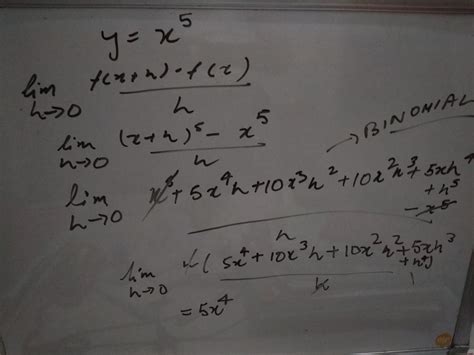 y = x⁵
lim h→0 f(x+h) - f(x) / h
lim h→0 (x+h)⁵ - x⁵ / h
→ BINOMIAL
lim h→0 x⁵ + 5x⁴h + 10x³h² + 10x²h³ + 5xh⁴ + h⁵ - x⁵ / h
lim h→0 h( 5x⁴ + 10x³h + 10x²h² + 5xh³ + h⁴) / h
= 5x⁴